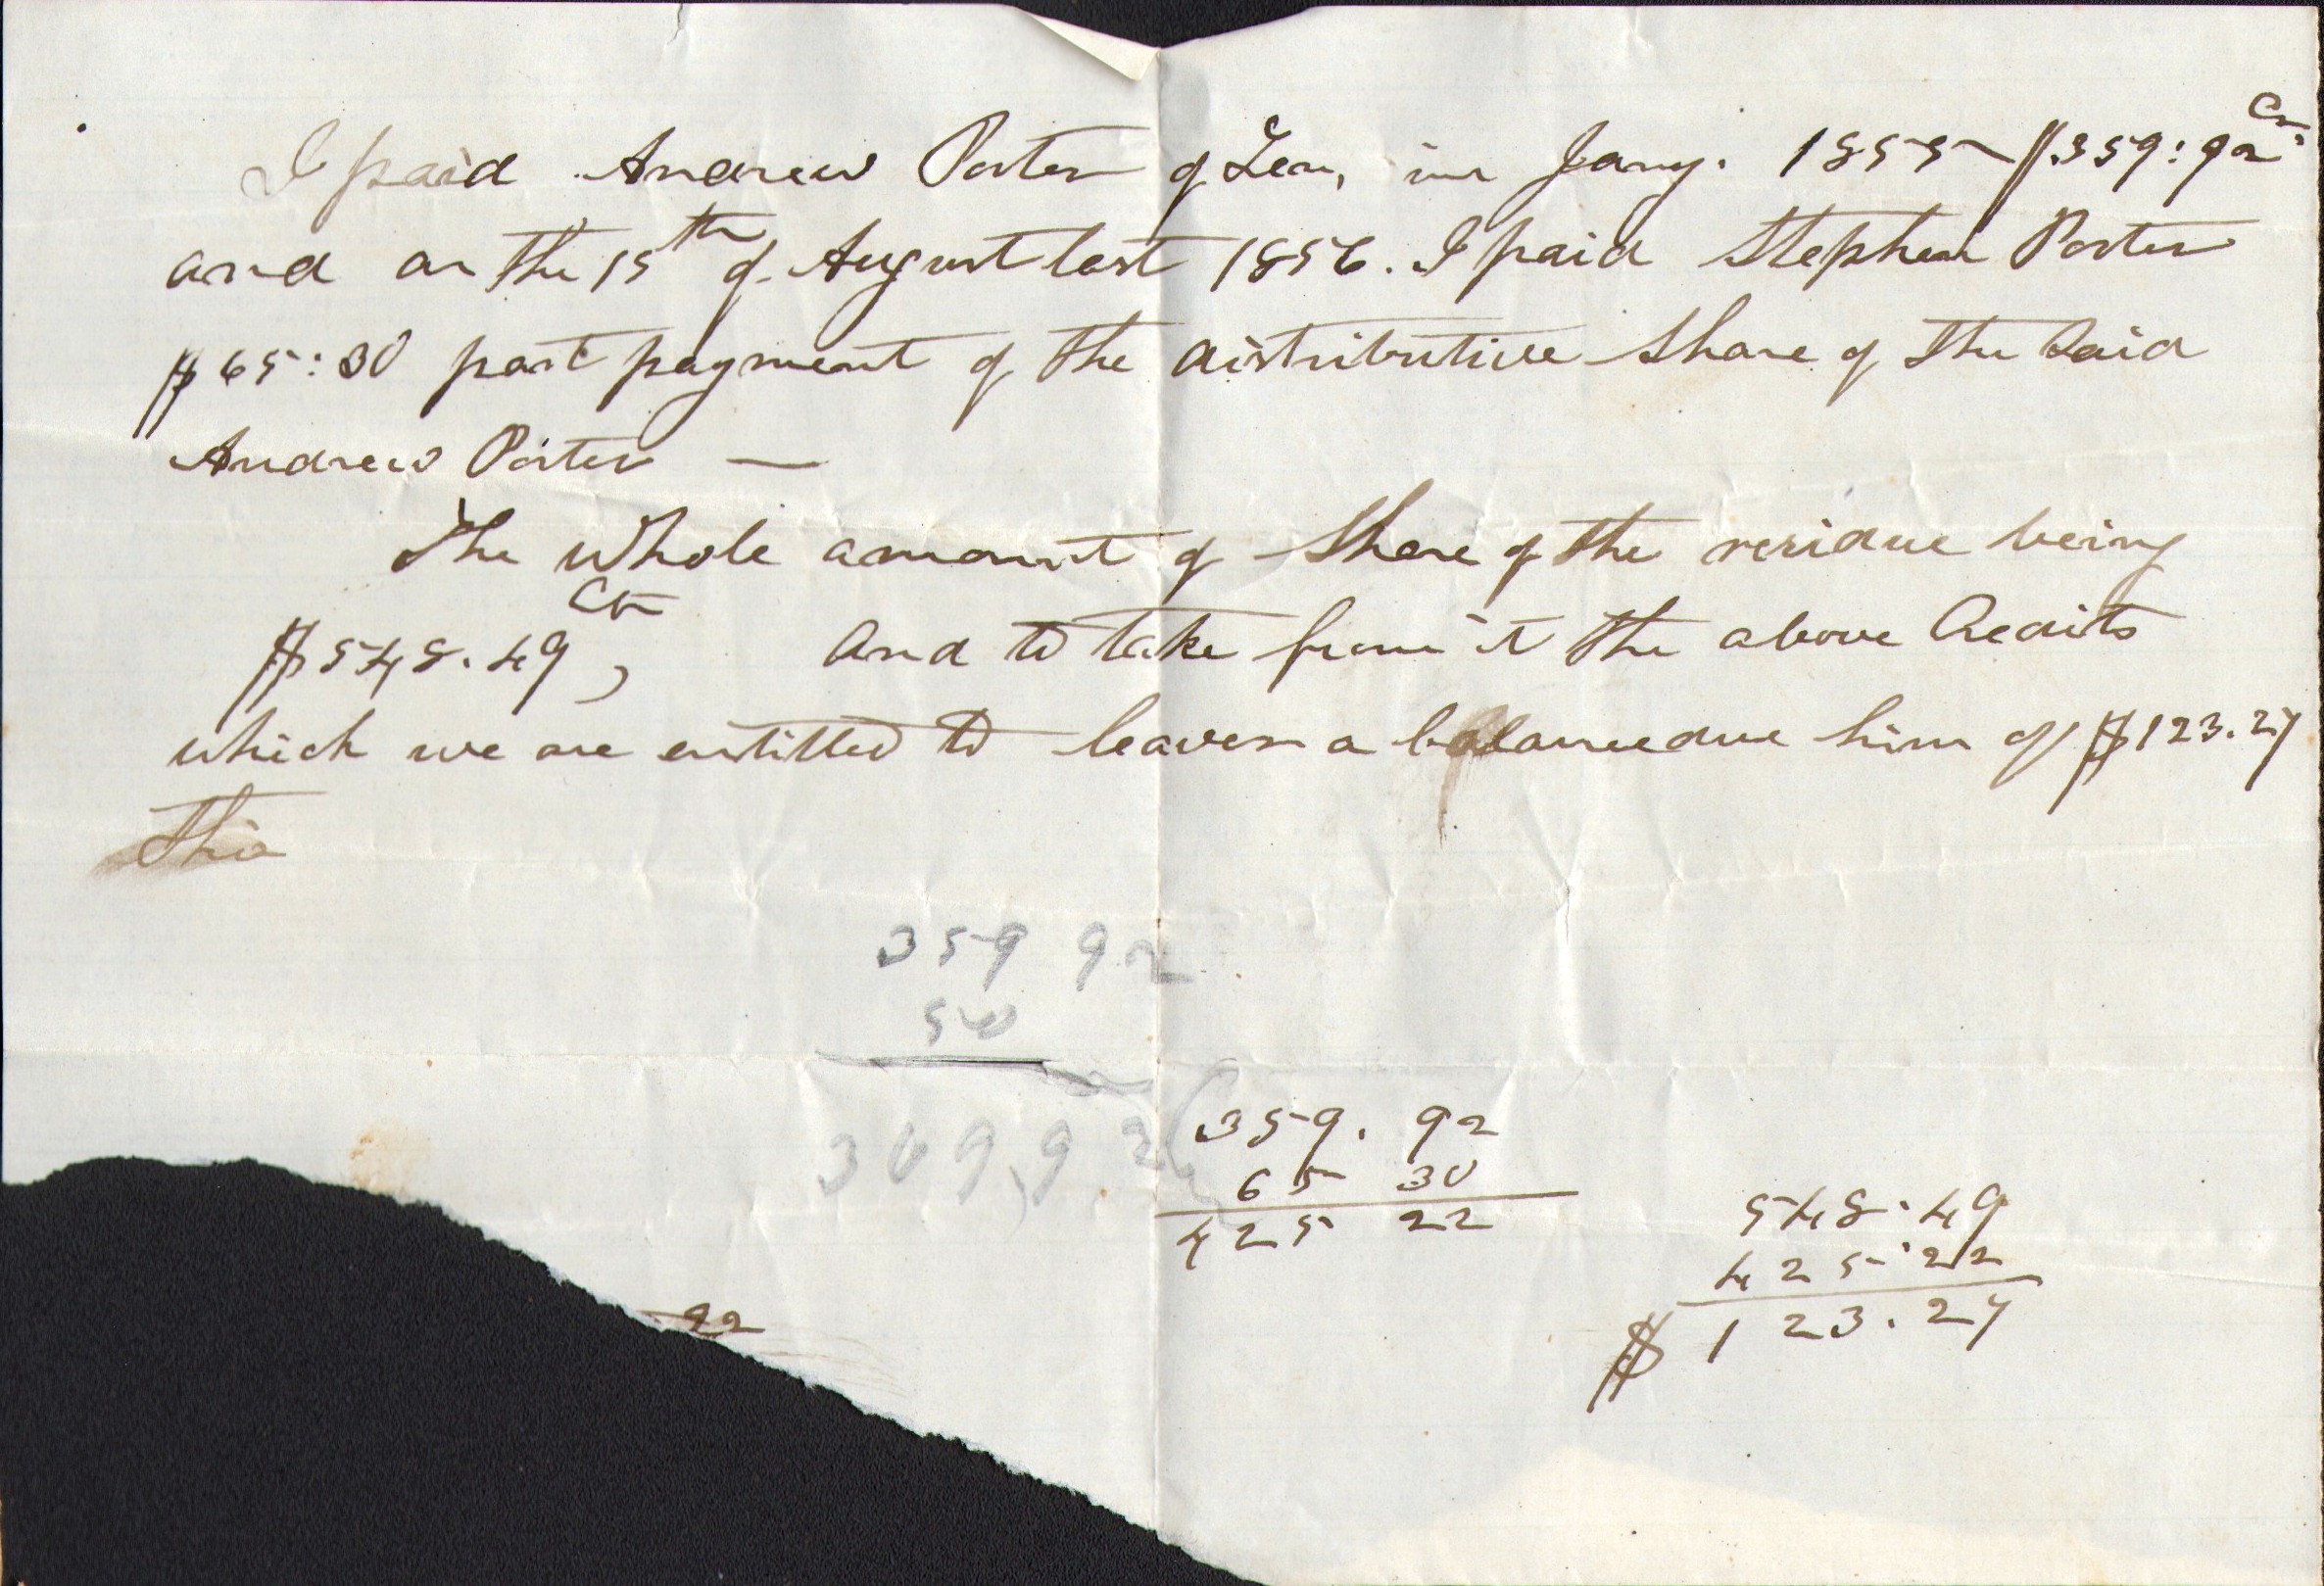 I paid Andrew Porter of Ten, in Jany. 1855 $359:92 Cts.
and on the 15th of August last 1856. I paid Stephen Porter
$65:30 part payment of the distributive share of the said
Andrew Porter —
The whole amount of share of the residue being
$548.49 Cts, And to take from it the above Credits
which we are entitled to leaves a balance due him of $123.27
This
359 92
50
309,92
359. 92
65 30
425 22
548.49
425.22
$ 123.27
92